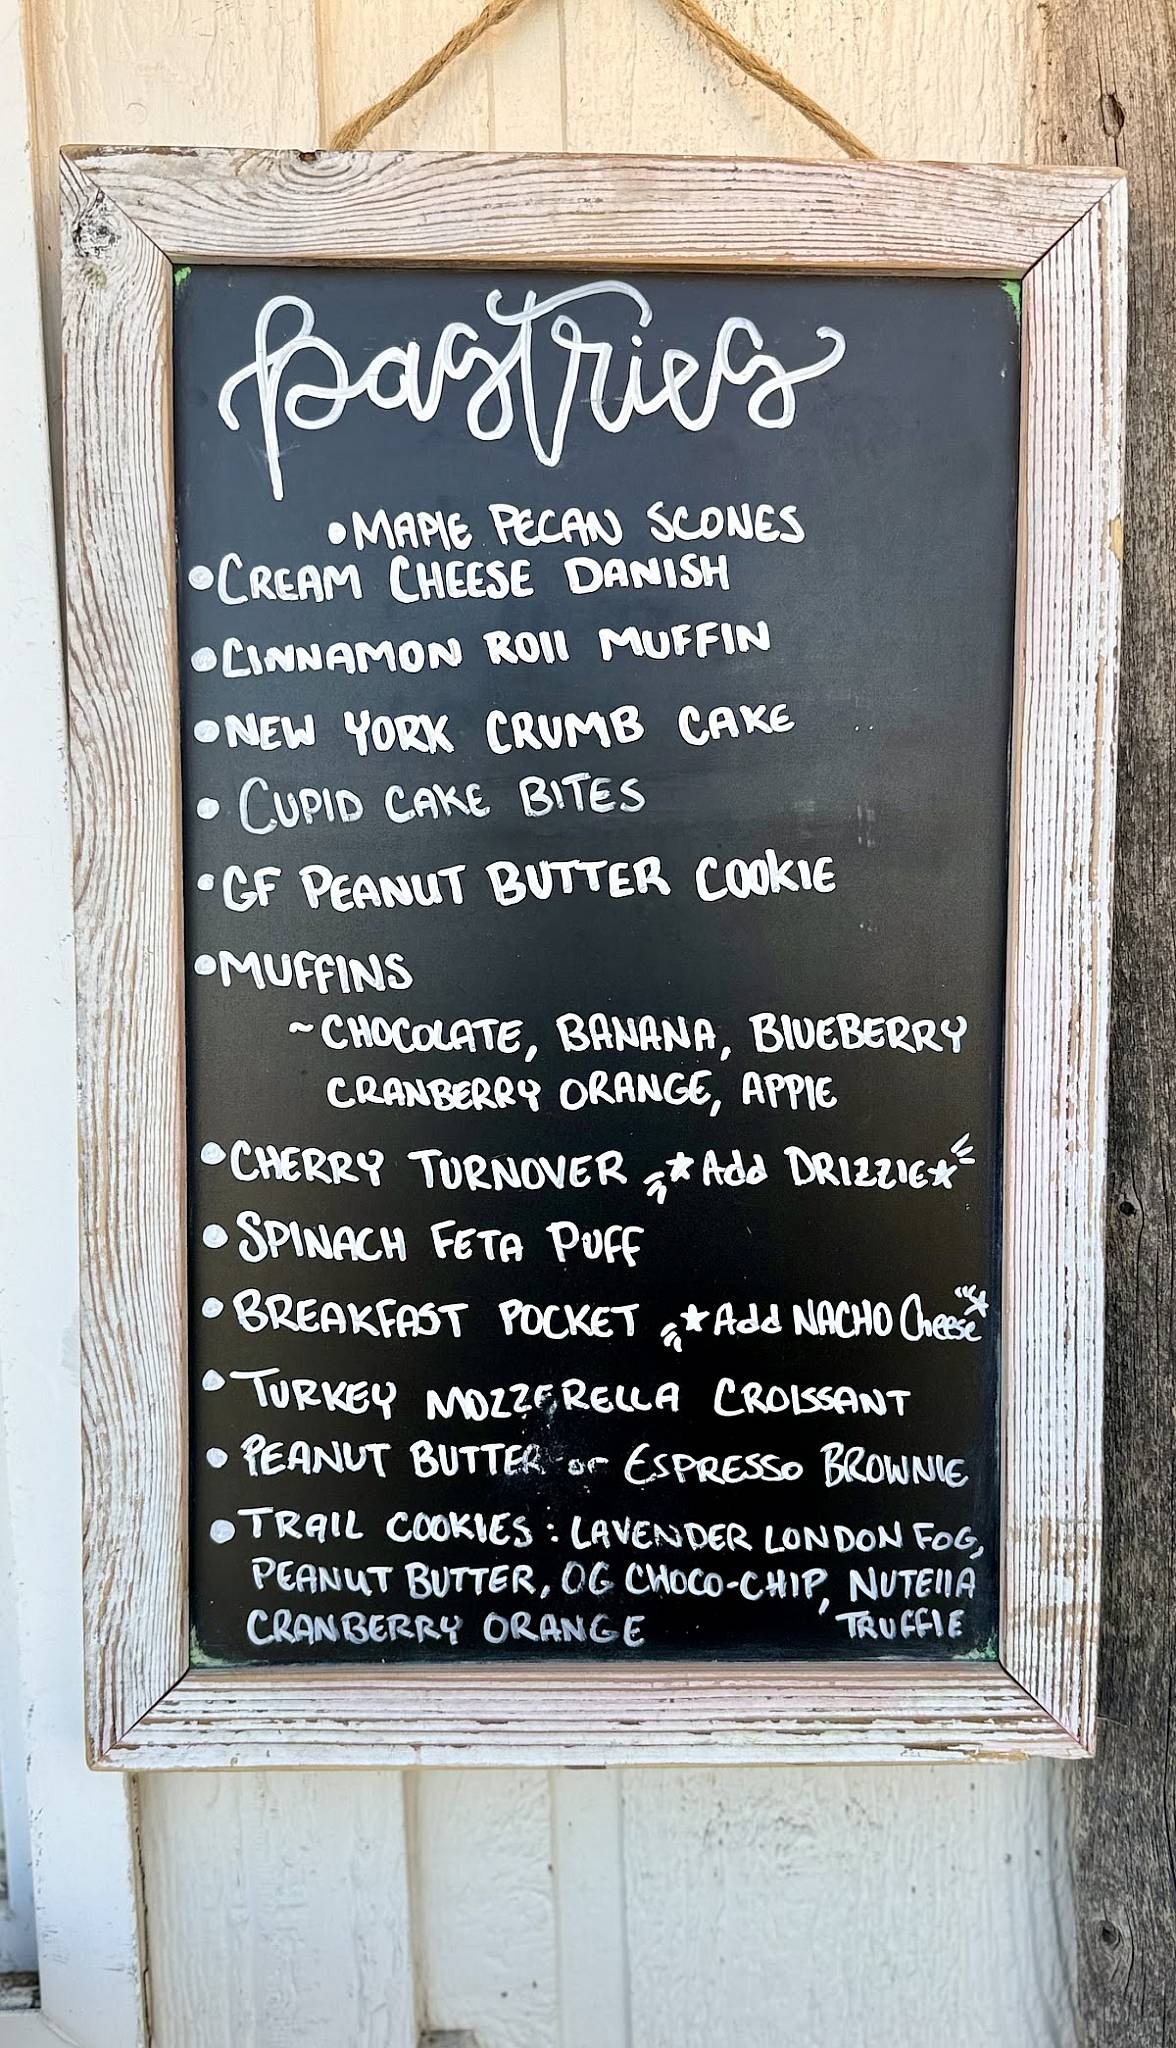 pastries
• MAPlE PECAN SCONES
• CREAM CHEESE DANISH
• CINNAMON ROll MUFFIN
• NEW YORK CRUMB CAKE
• CUPID CAKE BITES
• GF PEANUT BUTTER COOKIE
• MUFFINS
~ CHOCOLATE, BANANA, BlUEBERRY
CRANBERRY ORANGE, APPlE
• CHERRY TURNOVER *Add DRIZZlE*
• SPINACH FETA PUFF
• BREAKFAST POCKET *Add NACHO Cheese*
• TURKEY MOZZERELLA CROISSANT
• PEANUT BUTTER or ESPRESSO BROWNIE
• TRAIL COOKIES : LAVENDER LONDON FOG,
PEANUT BUTTER, OG CHOCO-CHIP, NUTEllA
CRANBERRY ORANGE TRUFFlE